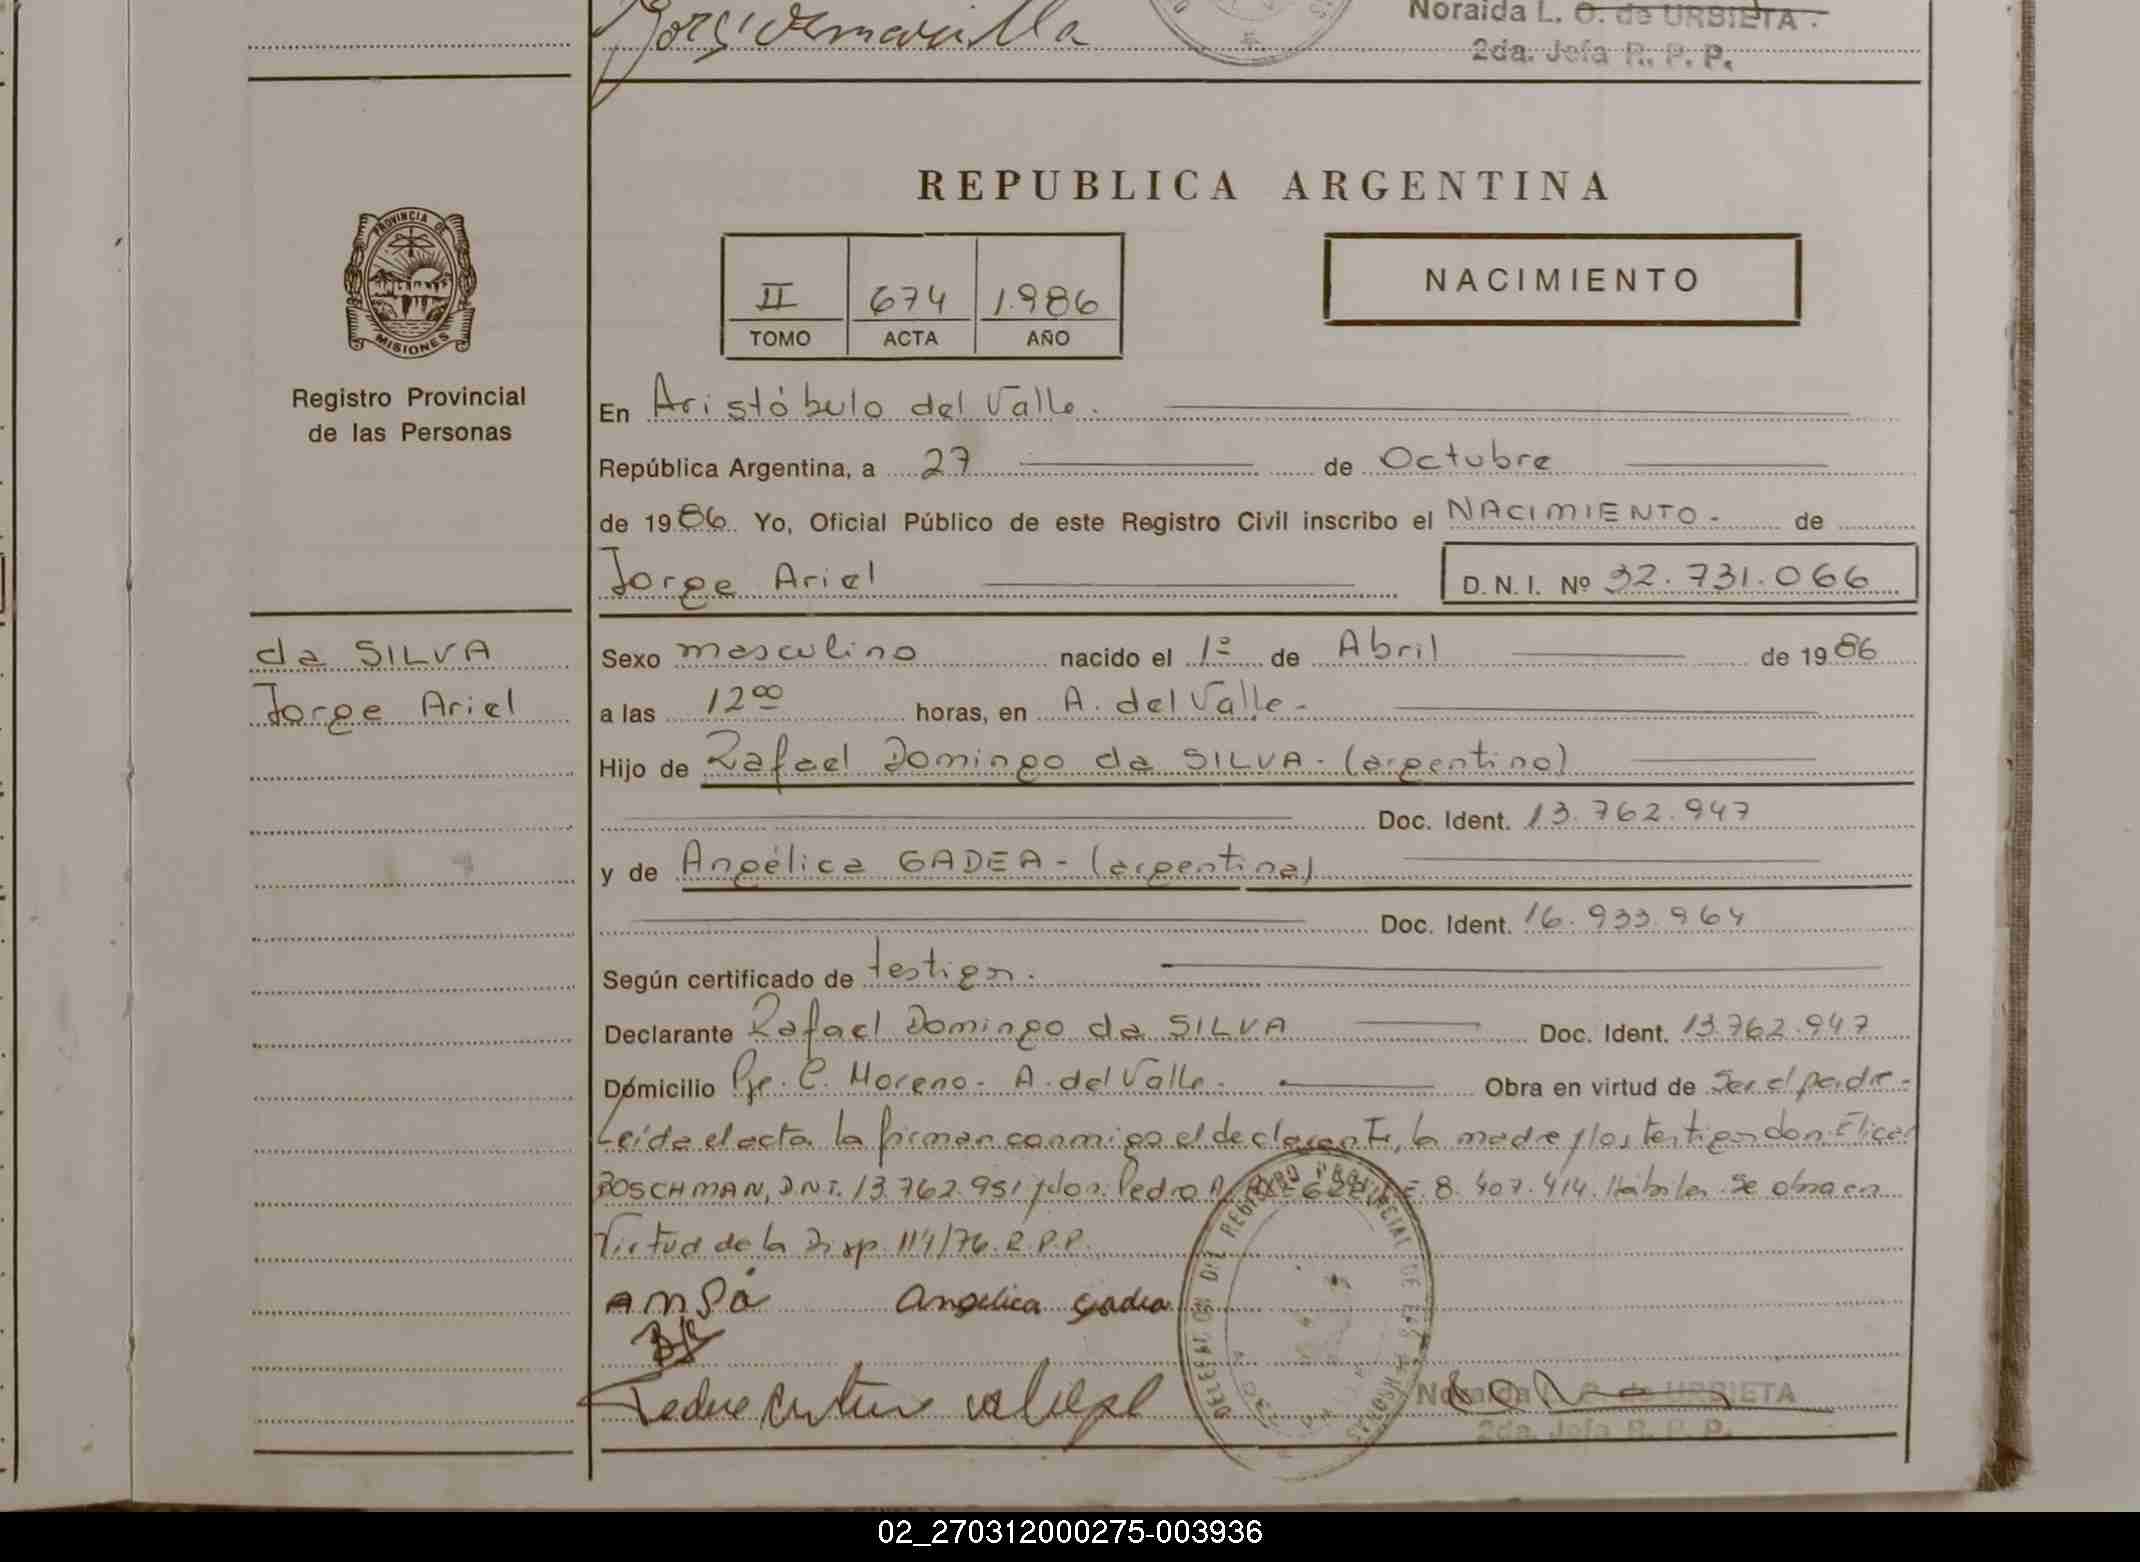 Noraida L. O. de URBIETA.
2da. Jefa R. P. P.
REPUBLICA ARGENTINA
PROVINCIA DE
MISIONES
Registro Provincial
de las Personas
II 674 1.986
TOMO ACTA AÑO
NACIMIENTO
En Aristóbulo del Valle.
República Argentina, a 27 de Octubre
de 1986 Yo, Oficial Público de este Registro Civil inscribo el NACIMIENTO - de
Jorge Ariel D. N. I. Nº 32.731.066
da SILVA
Jorge Ariel
Sexo masculino nacido el 1º de Abril de 1986
a las 12 00 horas, en A. del Valle -
Hijo de Rafael Domingo da SILVA - (argentino)
Doc. Ident. 13.762.947
y de Angélica GADEA - (argentina)
Doc. Ident. 16.933.964
Según certificado de testigos.
Declarante Rafael Domingo da SILVA Doc. Ident. 13.762.947
Domicilio Pje. C. Moreno - A. del Valle - Obra en virtud de Ser el padre -
Leída el acta la firman conmigo el declarante, la madre y los testigos don
BOSCHMAN, DNI. 13.762.951 y don Pedro A. 8.407.414. Hábiles. Se obra en
Virtud de la Disp. 114/76. R.P.P.
Angelica gadea
Noraida L. O. de URBIETA
2da. Jefa R. P. P.
02_270312000275-003936